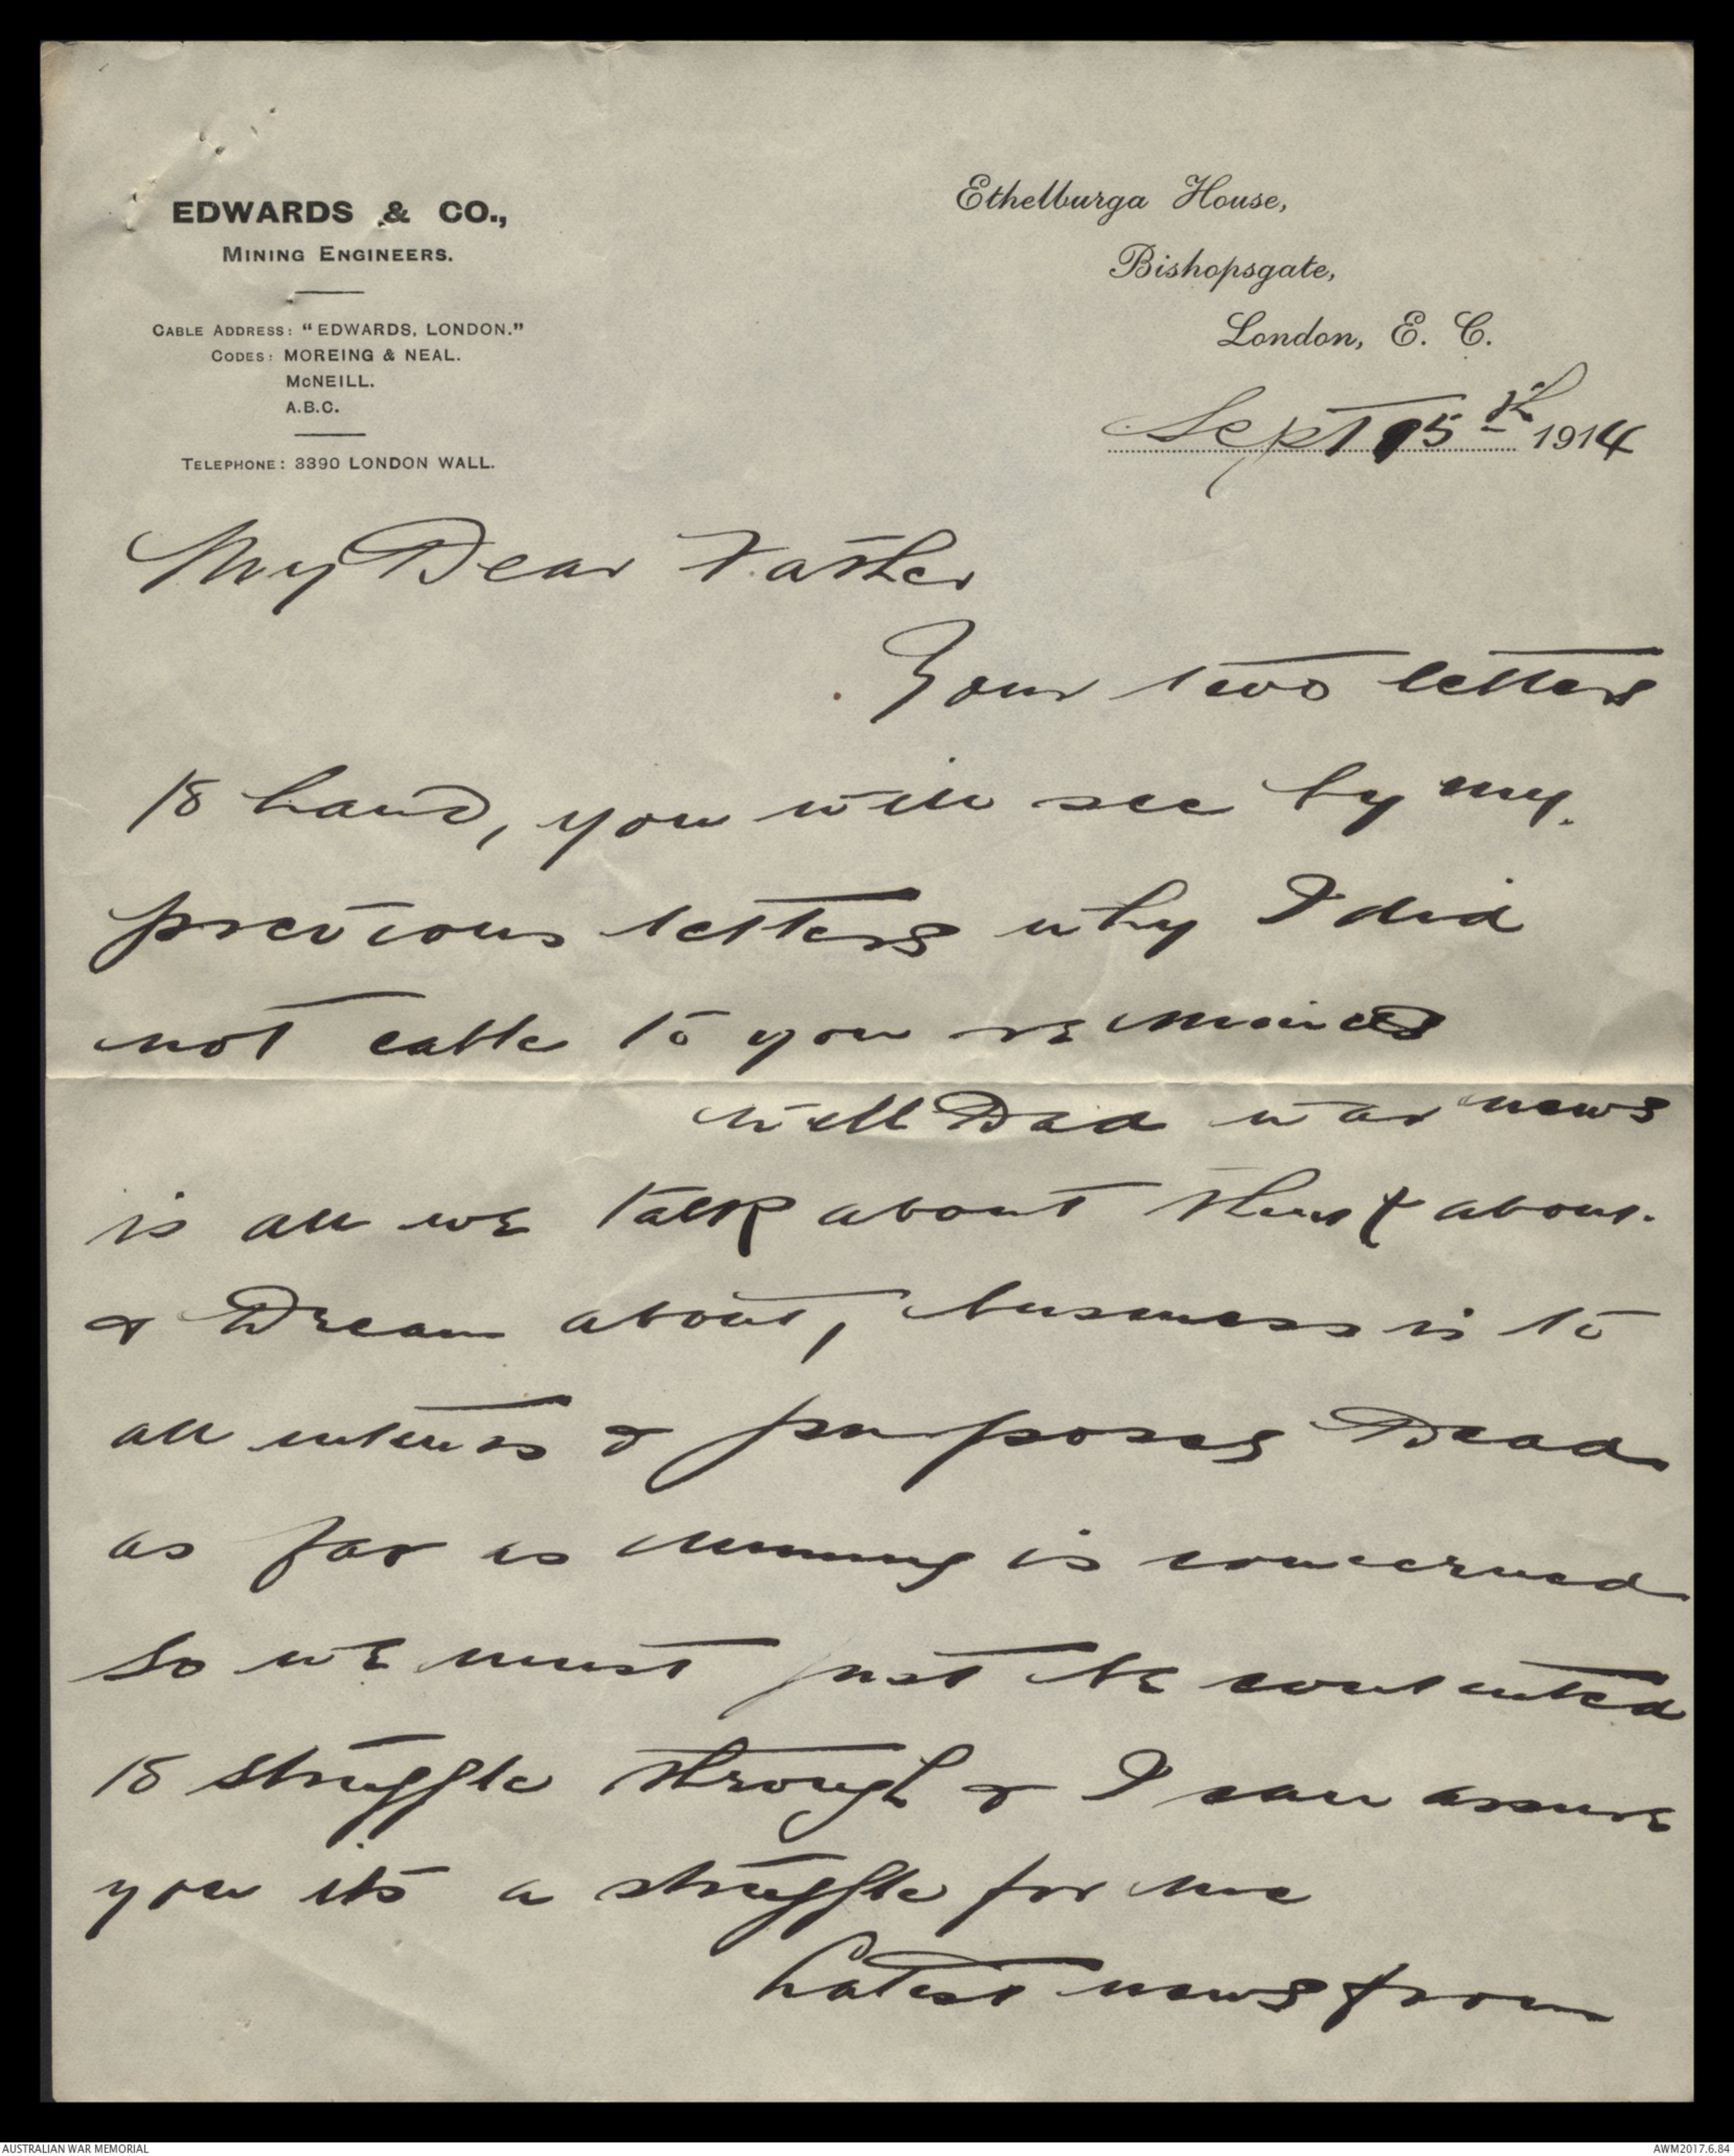 EDWARDS & CO.,
MINING ENGINEERS.
CABLE ADDRESS: "EDWARDS, LONDON."
CODES: MOREING & NEAL.
McNEILL.
A.B.C.
TELEPHONE: 3390 LONDON WALL.
Ethelburga House,
Bishopsgate,
London, E. C.
Sept 15th 1914
My Dear Father
Your two letters
to hand, you will see by my
previous letters why I did
not cable to you re
Well Dad war news
is all we talk about think about
& Dream about, business is to
all intents & purposes Dead
as far as mining is concerned
so we must just be contented
to struggle through & I can assure
you its a struggle for me
Latest news from
AUSTRALIAN WAR MEMORIAL
AWM2017.6.84